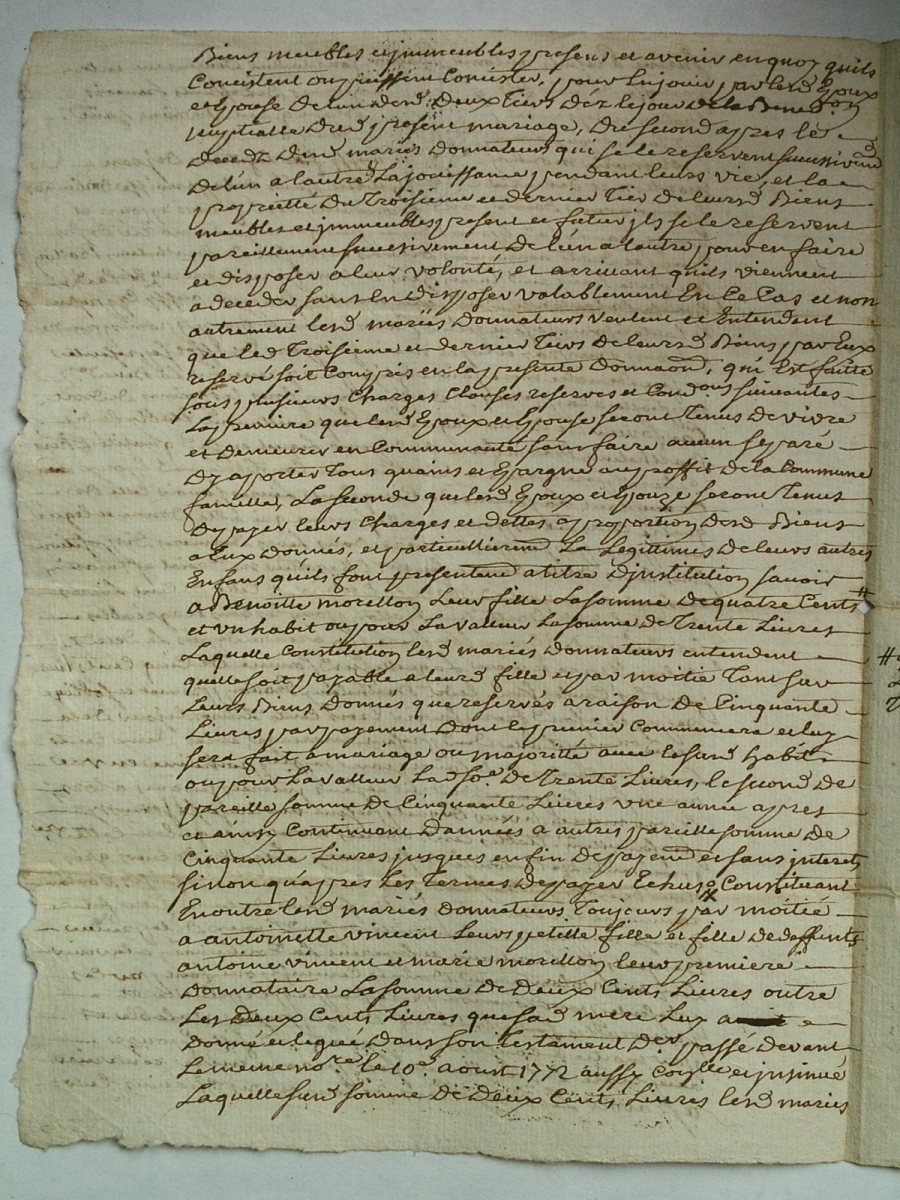 Biens meubles et jmmeubles presens et avenir en quoy quils
Concistent ou puissent Concister, pour En jouir par lesd Epoux
et Epouse De lun desd Deux Tiers déz le jour de la Bened.on
nuptialle Dud present mariage, Du second apres le
decedz Dud mariés Donnateurs qui se le reservent successivemt
De lun a lautre La joüissance pendant leurs vie, et la
proprietté Du Troisieme et dernier Tier de leursd Biens
meubles et jmmeubles present et futur jls se le reservent
pareillement successivement De lun a lautre pour en faire
et disposer a leur volonté, et arrivant quils viennent
a deceder sans En disposer valablement En Ce Cas et non
autrement lesd mariés Donnateurs veulent et Entendent
que led Troisieme et dernier Tiers de leursd Biens par Eux
reservé soit Compris en la presente Donnaon, qui Est faitte
sous plusieurs Charges Clauses reserves et Condons suivantes
La premiere que lesd Epoux et Epouse seront tenus de vivre
et Demeurer en Communauté sans faire aucun separé
Dy aporter Tous quains et Epargne au proffit de la Commune
famille, La seconde que lesd Epoux et Epouze seront Tenus
De payer leurs Charges et dettes a proportion desd Biens
a Eux Donnés, et particullieremt La Legittimes de leurs autres
Enfans quils font presentemt a titre Djnstitution savoir
a Benoitte morellon Leur fille La somme de quatre Cents #
et un habit ou pour La valleur La somme de Trente Livres
Laquelle Constitution lesd mariés Donnateurs entendent
quelle soit payable a leurd fille et par moitié Tant sur
Leurs Biens Donnés que reservés a raison De Cinquante
Livres par payement Dont le premier Commencera et luy
sera fait a mariage ou majoritté avec le susd habit
ou pour La valleur Lad soe. de Trente Livres, le second de
pareille somme de Cinquante Livres une année apres
et ainsy Continuant Dannées a autres pareille somme de
Cinquante Livres jusques en fin de payemt et sans interets
sinon quapres Les Termes de payer Echus, Constituant
En outre lesd mariés donnateurs Toujours par moitié
a antoinette vincent Leurs petitte fille et fille de deffunts
antoine vincent et marie morellon leur premiere
Donnataire La somme de Deux Cents Livres outre
Les Deux Cents Livres que sad mere Lux a
Donné et legué Dans son testament Der passé devant
Le meme nore le 10e. aoust 1772 aussy Coñlle et jnsinué
Laquelle susd somme de deux Cents Livres lesd mariés
#